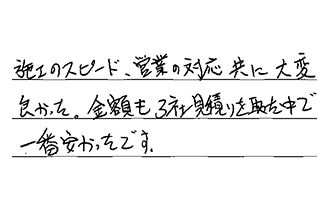 施工のスピード、営業の対応共に大変
良かった。金額も3社見積りを取た中で
一番安かったです。